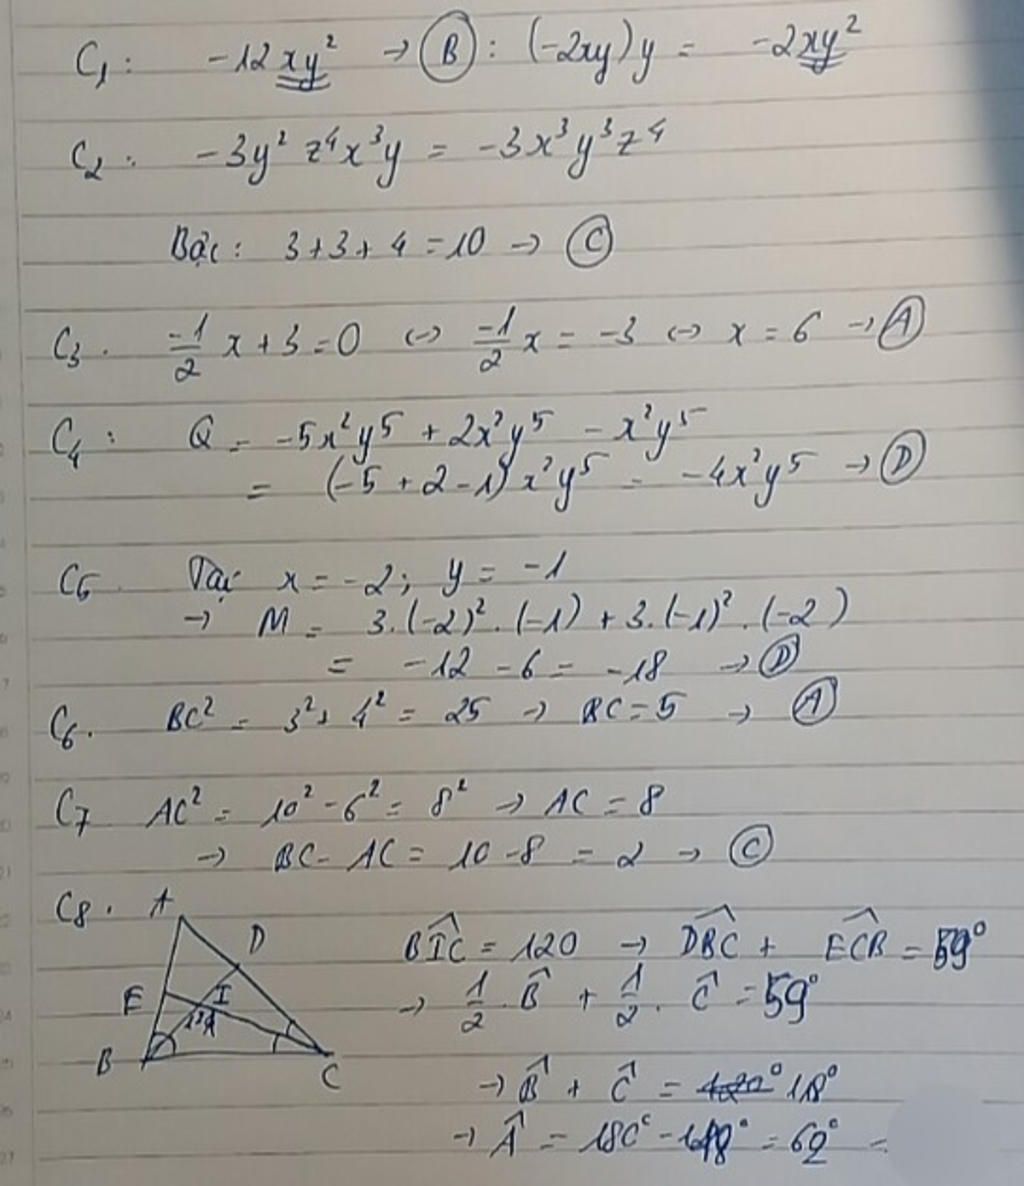 C₁: -12xy² → B : (-2xy)y = -2xy²
C₂: -3y² z⁴x³y = -3x³y³z⁴
Bậc: 3+3+4 = 10 → C
C₃. -1/2 x + 3 = 0 ↔ -1/2 x = -3 ↔ x = 6 → A
C₄: Q = -5x²y⁵ + 2x²y⁵ - x²y⁵
= (-5 + 2 - 1) x²y⁵ = -4x²y⁵ → D
C₅ Tại x = -2; y = -1
→ M = 3.(-2)².(-1) + 3.(-1)².(-2)
= -12 - 6 = -18 → D
C₆. BC² = 3² + 4² = 25 → BC = 5 → A
C₇ AC² = 10² - 6² = 8² → AC = 8
→ BC - AC = 10 - 8 = 2 → C
C₈. A
D
E I
B C
BIC = 120 → DBC + ECB = 59°
→ 1/2 . B + 1/2 . C = 59°
→ B + C =
→ A = 180° - = 62° =